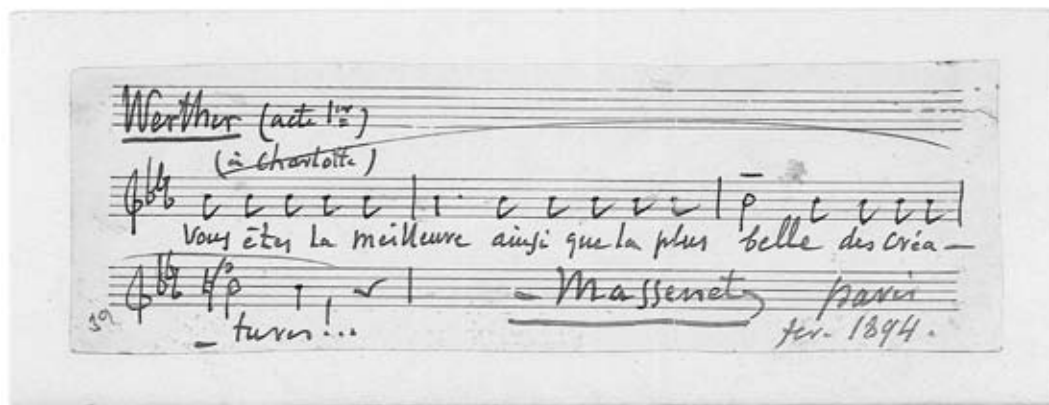 Werther (acte 1er)
(à Charlotte)
Vous êtes la meilleure ainsi que la plus belle des créa–
– tures!...
– Massenet
paris
fev. 1894.
39